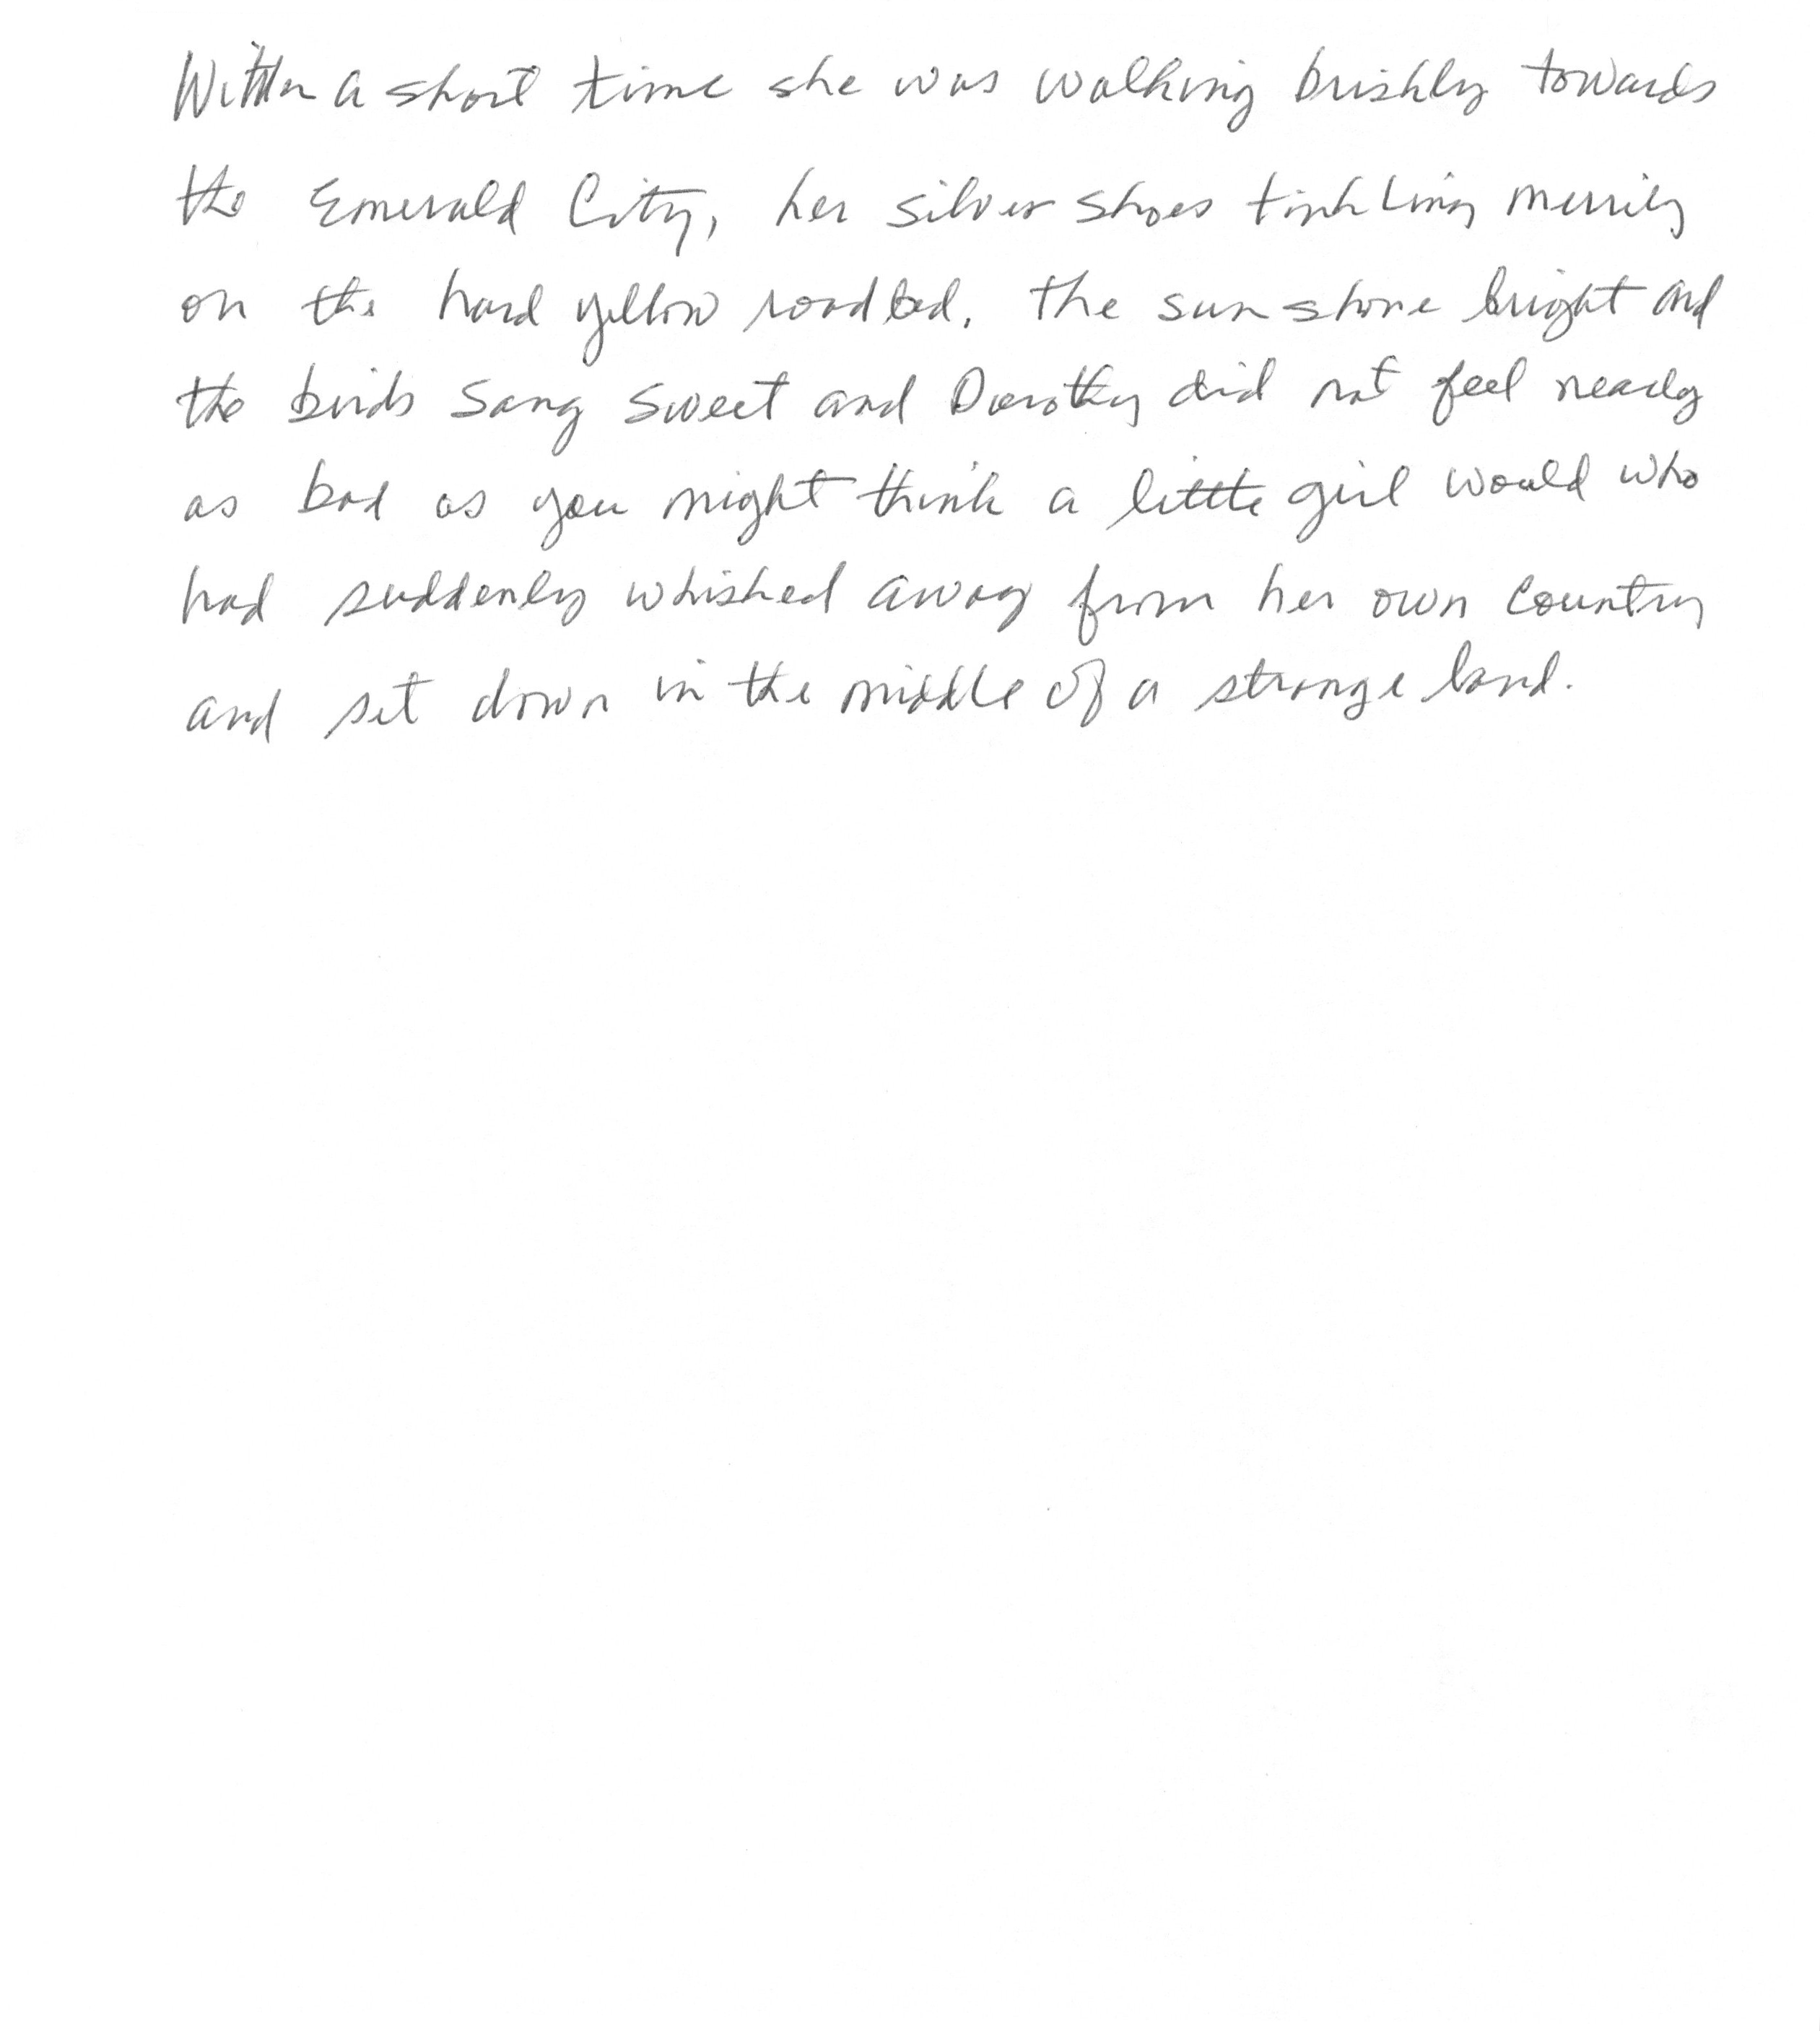 Within a short time she was walking briskly towards
the Emerald City, her silver shoes tinkling merrily
on the hard yellow roadbed. The sun shone bright and
the birds sang sweet and Dorothy did not feel nearly
as bad as you might think a little girl would who
had suddenly whished away from her own country
and set down in the middle of a strange land.